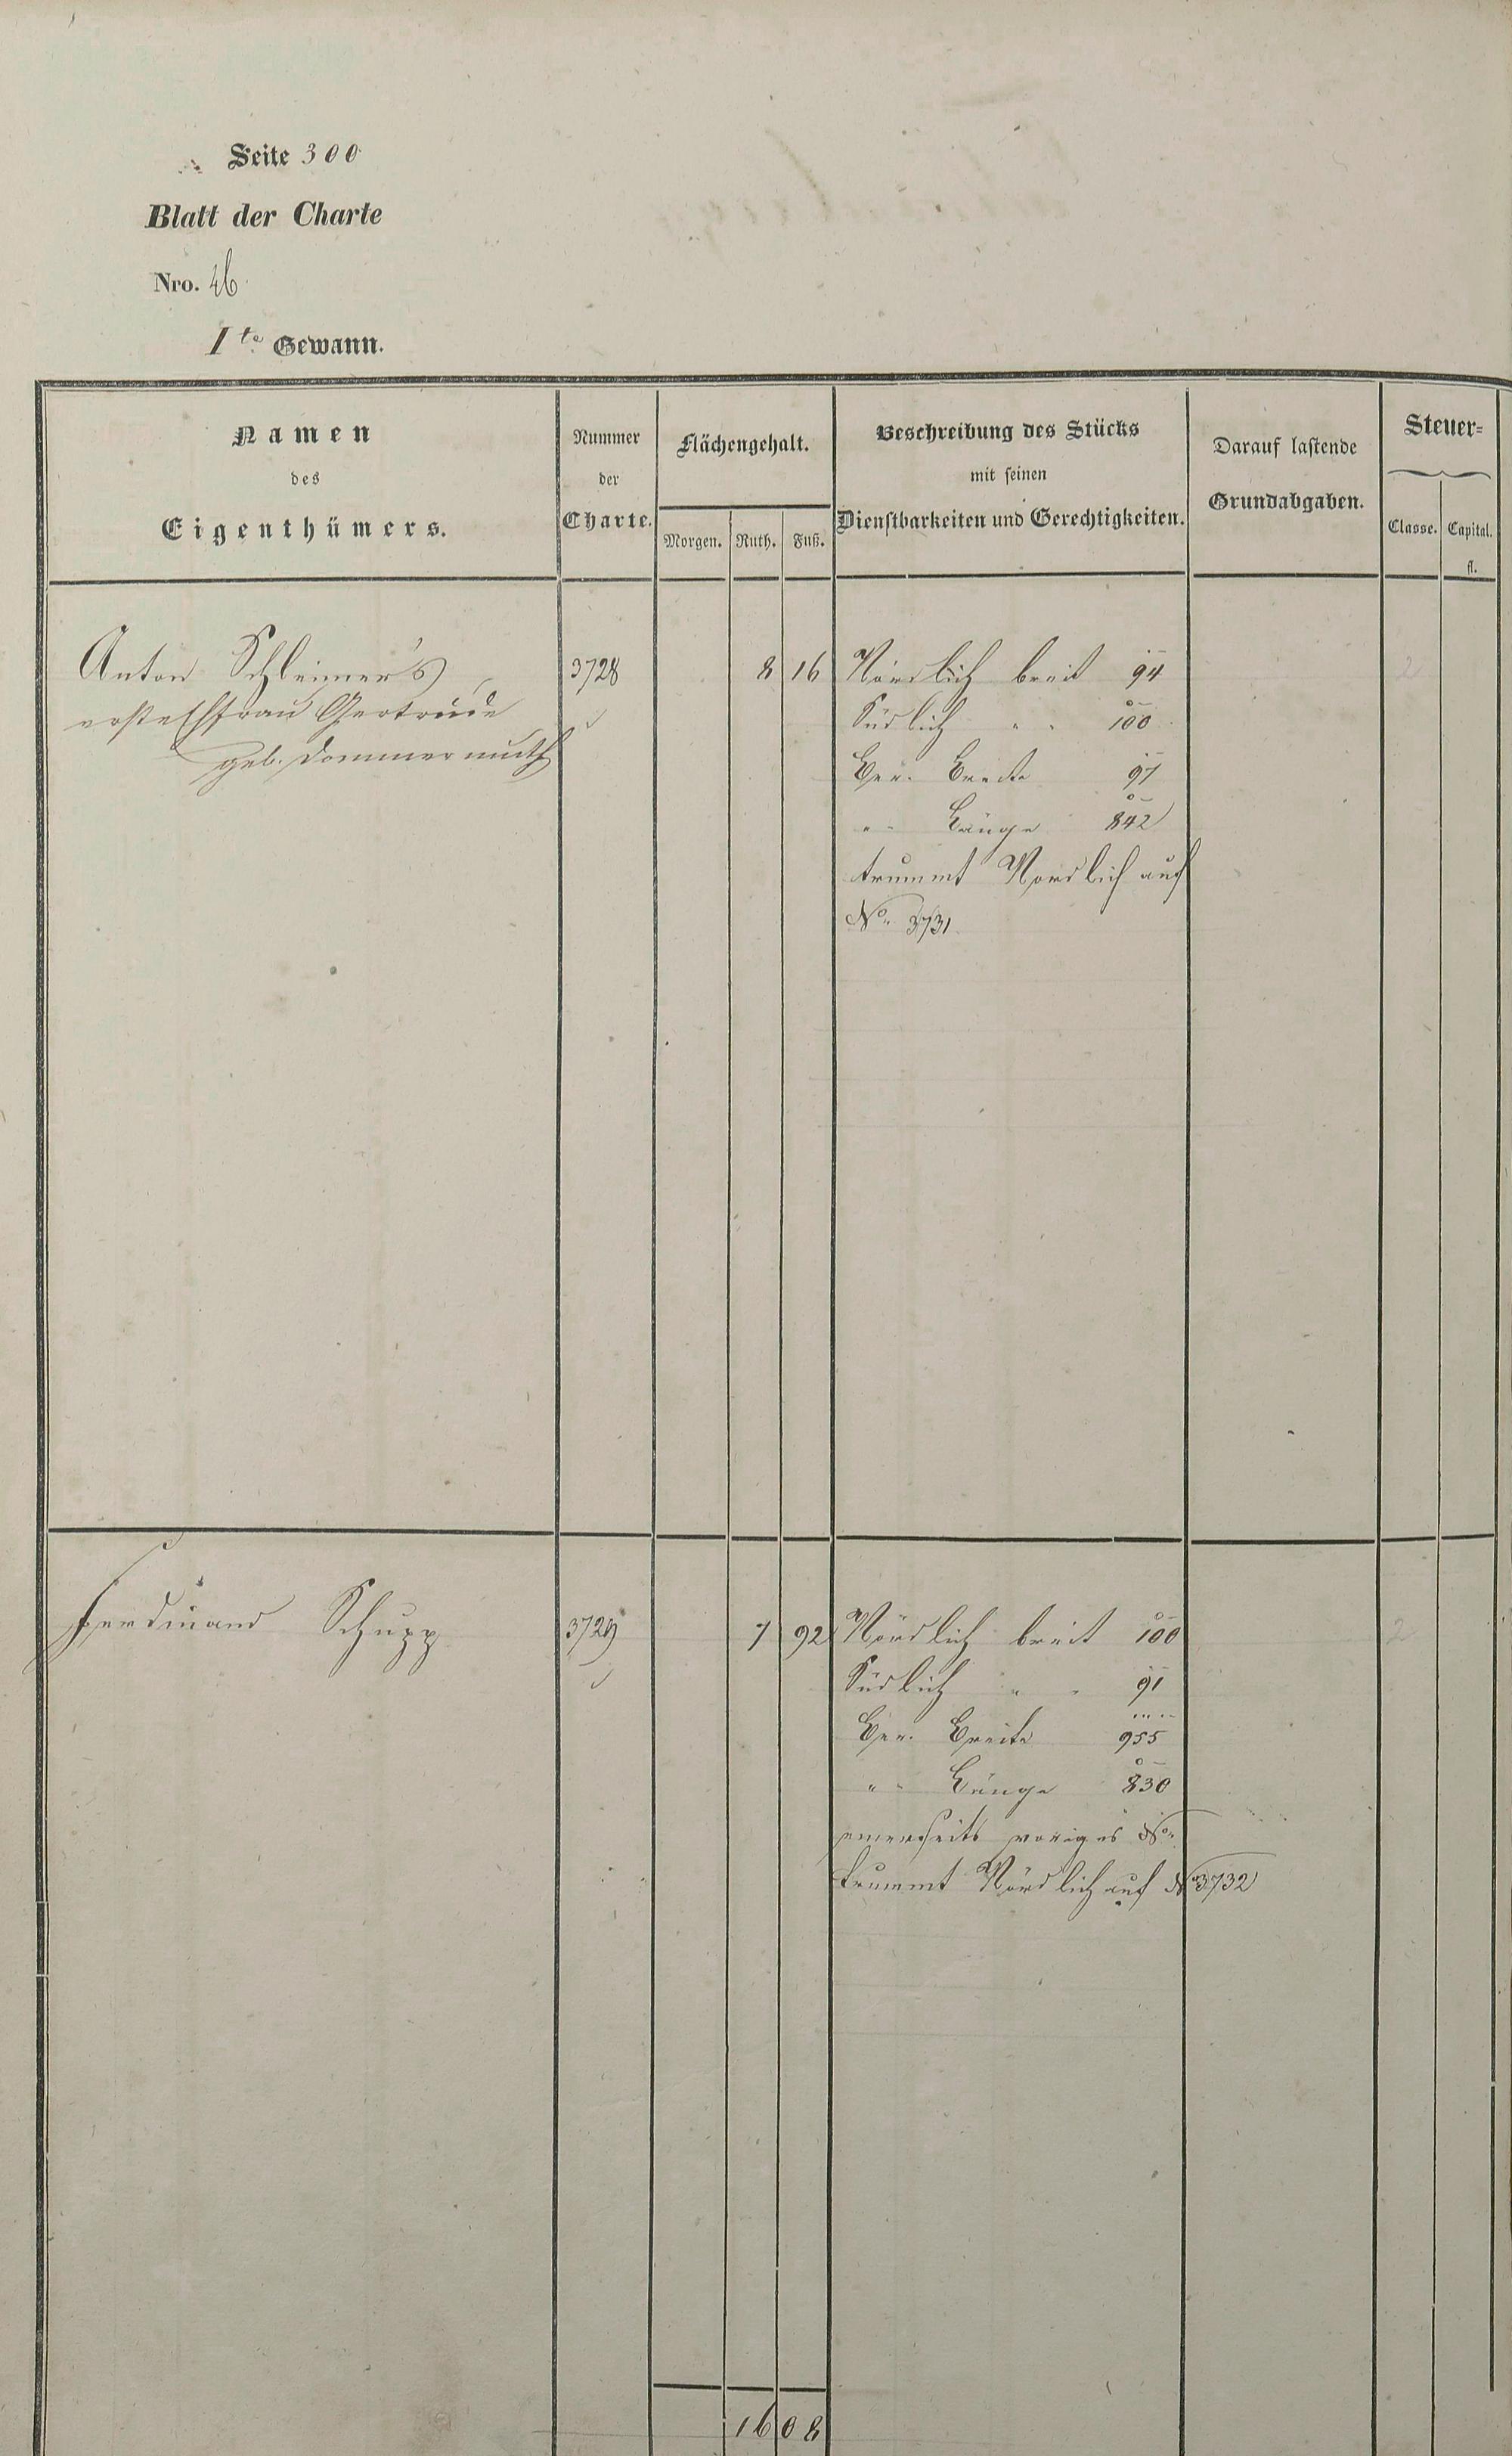 Seite 300
Blatt der Charte
Nro. 46
1te Gewann.
Namen
des
Eigenthümers.
Nummer
der
Charte.
Flächengehalt.
Morgen. Ruth. Fuß.
Beschreibung des Stücks
mit seinen
Dienstbarkeiten und Gerechtigkeiten.
Darauf lastende
Grundabgaben.
Steuer-
Classe. Capital.
fl.
Anton Schleimer's 3728 8 16 Nördlich breit 94 2
erste Ehfrau Gertrude Südlich " " 100
geb. Dommermuth Ber. Breite 97
" " Länge 842
trummt Nordlich auf
No. 3731
Ferdinand Schupp 3729 7 92 Nördlich breit 100 2
Südlich " " 91
Ber. Breite 955
" " Länge 830
einerseits voriges No.
trummt Nördlich auf No 3732
16 08